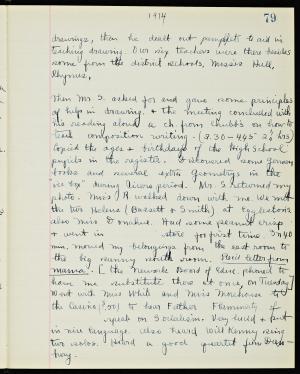 1914
79
drawings, then he dealt out pamphlets to aid in
teaching drawing. Our six teachers were there besides
some from the district schools, Misses Hull,
Then Mr. S. asked for and gave some principles
of help in drawing, & the meeting concluded with
his reading aloud a ch. from Chubb's on how to
teach composition writing. (2.30 - 4.45 2¼ hrs)
Copied the ages & birthdays of the High School
pupils in the register. I discovered some German
books and several extra Geometrys in the
"ice box" during Vicero period. Mr. S returned my
photo. Miss R walked down with me. We met
the two Helens (Bassett & Smith) at
also Miss Donahue. Had some
& went in store for first time. In 40
min. moved my belongings from the east room to
the big sunny south room. Rec'd letter from
mama. [The Newark Board of Educ. phoned to
have me substitute there at once, on Tuesday]
Went with Miss White and Miss Morehouse to
the Casino to hear Father
speak on Socialism. Very good & put
in nice language. Also heard Will Kenny sing
two solos. Heard a good quartet from Dan-
bury.